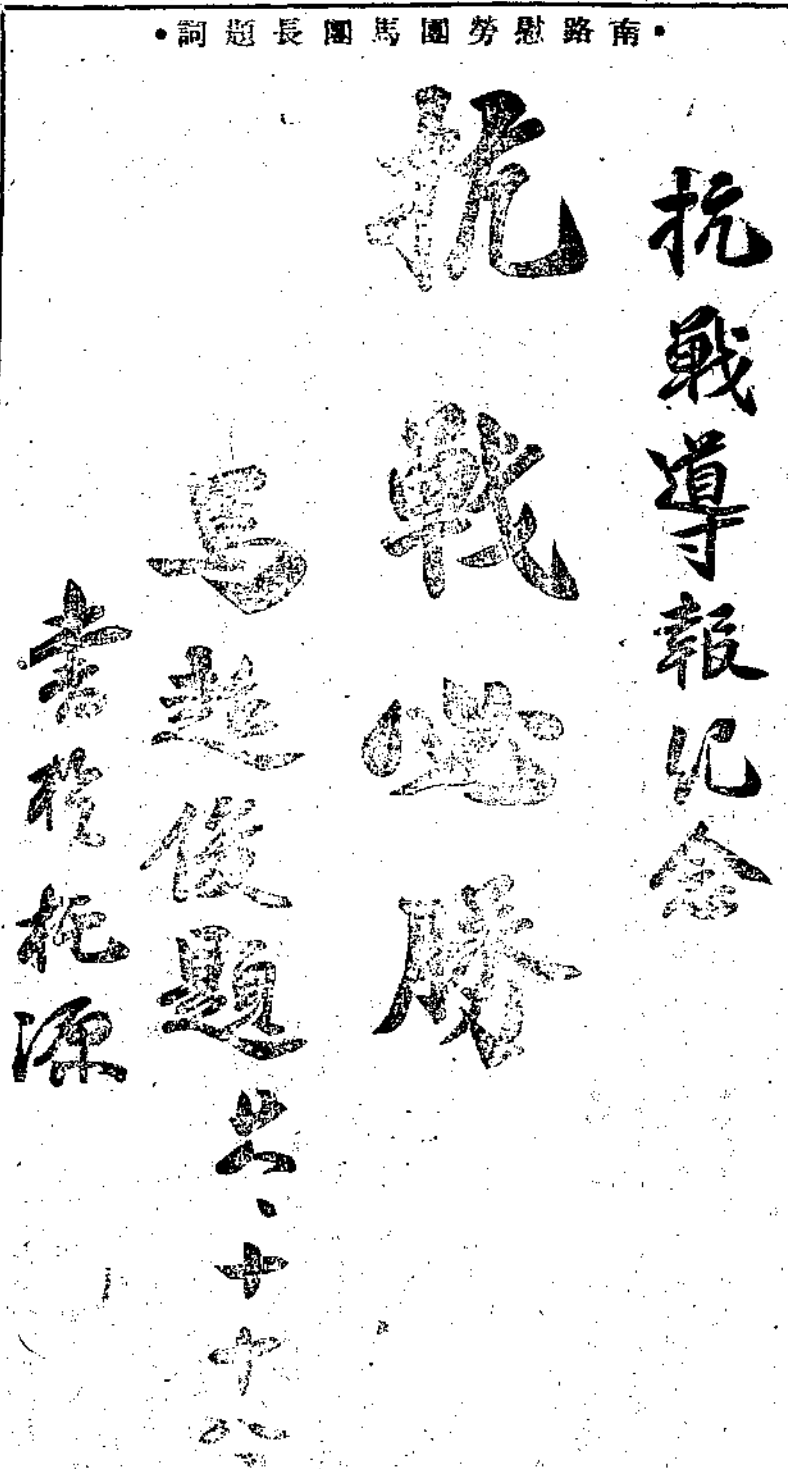 •南路慰勞團馬團長題詞•
抗戰導報紀念
抗戰必勝
馬超俊題 六、十十八
書於桃源